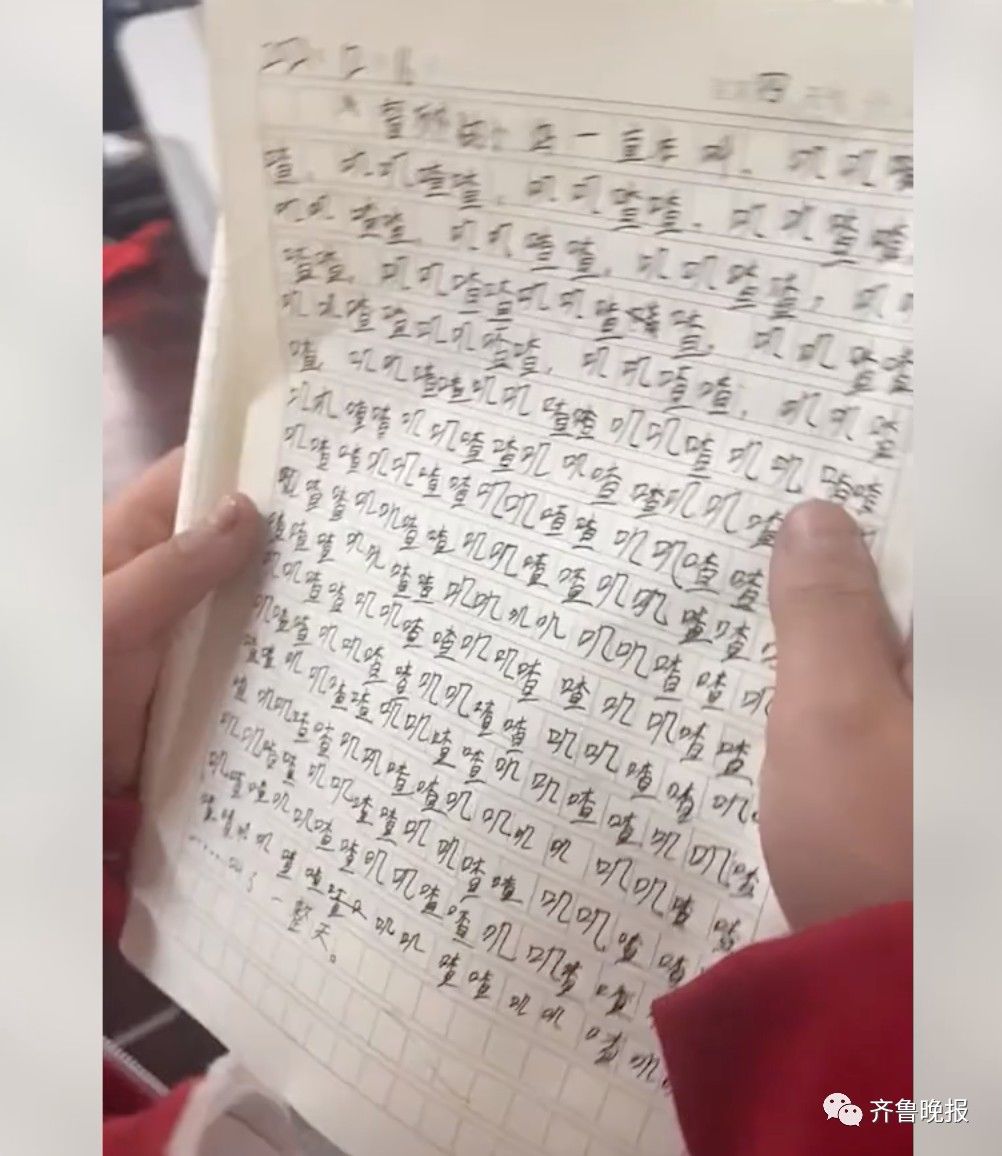 22.12.6 四
今 一直在叫，叽叽喳
喳，叽叽喳喳，叽叽喳喳，叽叽喳喳
叽叽喳喳，叽叽喳喳，叽叽喳喳，叽
喳喳，叽叽喳喳叽叽喳喳，叽叽喳喳
叽叽喳喳叽叽喳喳，叽叽喳喳，叽叽喳
喳，叽叽喳喳叽叽喳喳叽叽喳叽叽喳喳
叽叽喳喳叽叽喳喳叽叽喳喳叽叽喳
叽喳喳叽叽喳喳叽叽喳喳叽叽喳喳
叽喳喳叽叽喳喳叽叽喳喳叽叽喳喳
喳喳喳叽叽喳喳叽叽叽叽叽叽喳喳叽
叽叽喳喳叽叽喳喳叽叽喳喳叽叽喳喳
叽喳喳叽叽喳喳叽叽喳喳叽叽喳喳叽
喳喳叽叽喳喳叽叽喳喳叽叽喳喳叽叽喳
喳叽叽喳喳叽叽喳喳叽叽叽叽叽叽喳喳
叽叽喳喳叽叽喳喳叽叽喳喳叽叽喳喳
叽喳喳叽叽喳喳叽叽喳喳叽叽喳喳
喳喳叽叽喳喳喳叽叽喳喳叽叽喳叽
……叫了一整天。
齐鲁晚报